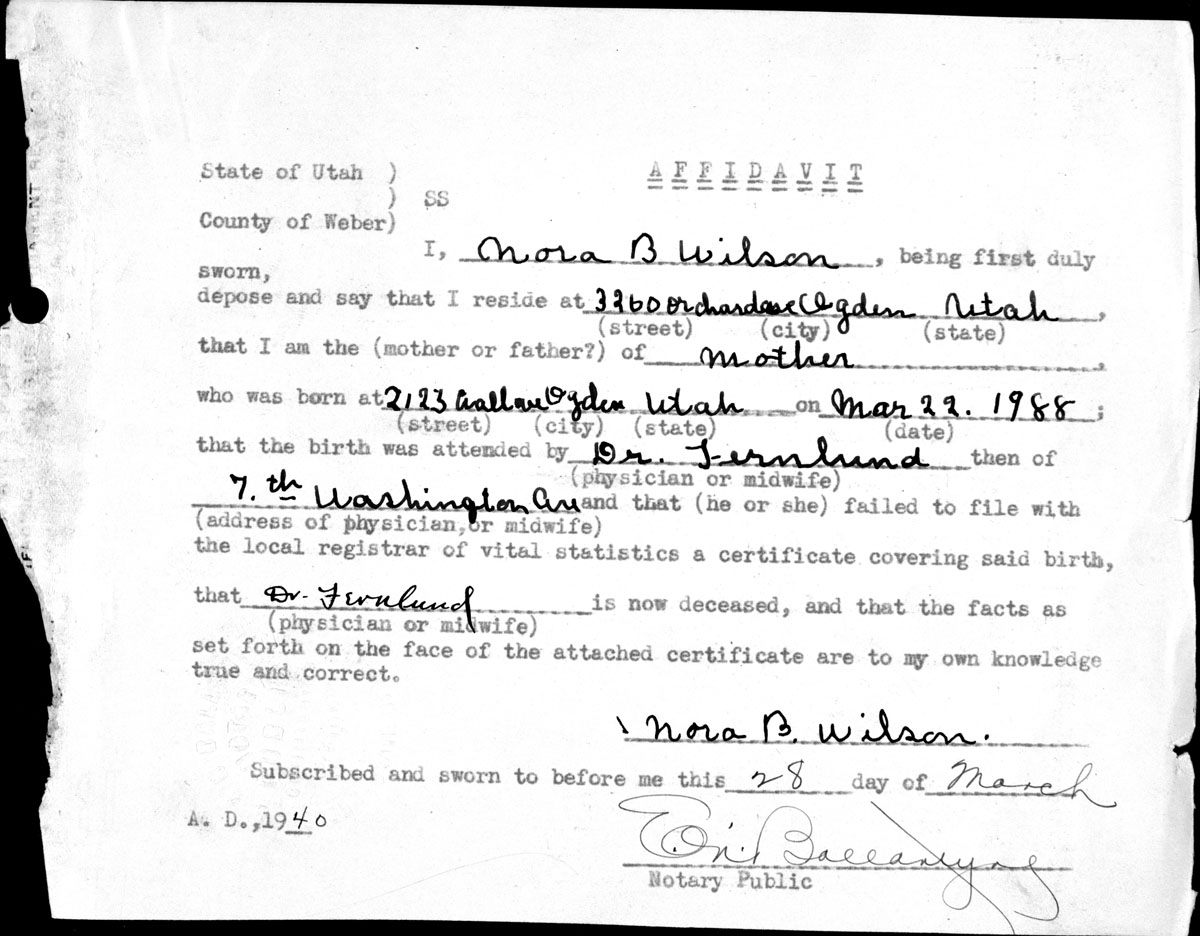 State of Utah ) A F F I D A V I T
) SS
County of Weber)
I, Nora B Wilson, being first duly
sworn,
depose and say that I reside at 3260 Orchard ave Ogden Utah,
(street) (city) (state)
that I am the (mother or father?) of mother,
who was born at 2123 Ogden Utah on Mar 22. 1988;
(street) (city) (state) (date)
that the birth was attended by Dr. Fernlund then of
(physician or midwife)
7.th Washington Ave and that (he or she) failed to file with
(address of physician,or midwife)
the local registrar of vital statistics a certificate covering said birth,
that Dr. Fernlund is now deceased, and that the facts as
(physician or midwife)
set forth on the face of the attached certificate are to my own knowledge
true and correct.
Nora B. Wilson.
Subscribed and sworn to before me this 28 day of March
A. D.,1940
Ballantyne
Notary Public